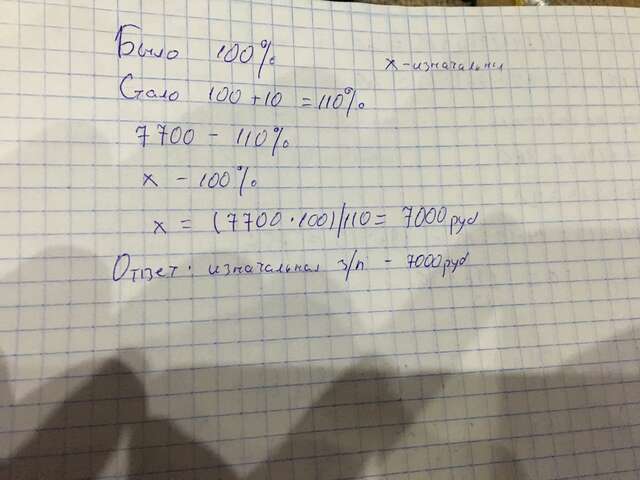 Было 100%
x - изначальни
Стало 100 + 10 = 110%
7700 - 110%
x - 100%
x = (7700 · 100)/110 = 7000 руб
Ответ: изначальная з/п - 7000 руб